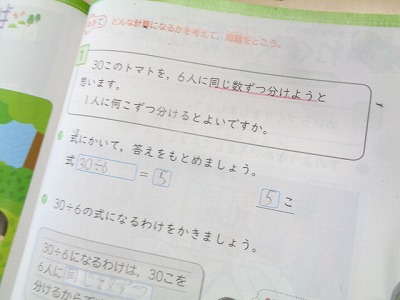 どんな計算になるかを考えて、問題をとこう。
1
30このトマトを，6人に同じ数ずつ分けようと
思います。
1人に何こずつ分けるとよいですか。
式にかいて，答えをもとめましょう。
しき
式 30÷6 = 5
5 こ
30÷6の式になるわけをかきましょう。
30÷6になるわけは，30こを
6人に同じ数ずつ
分けるからで